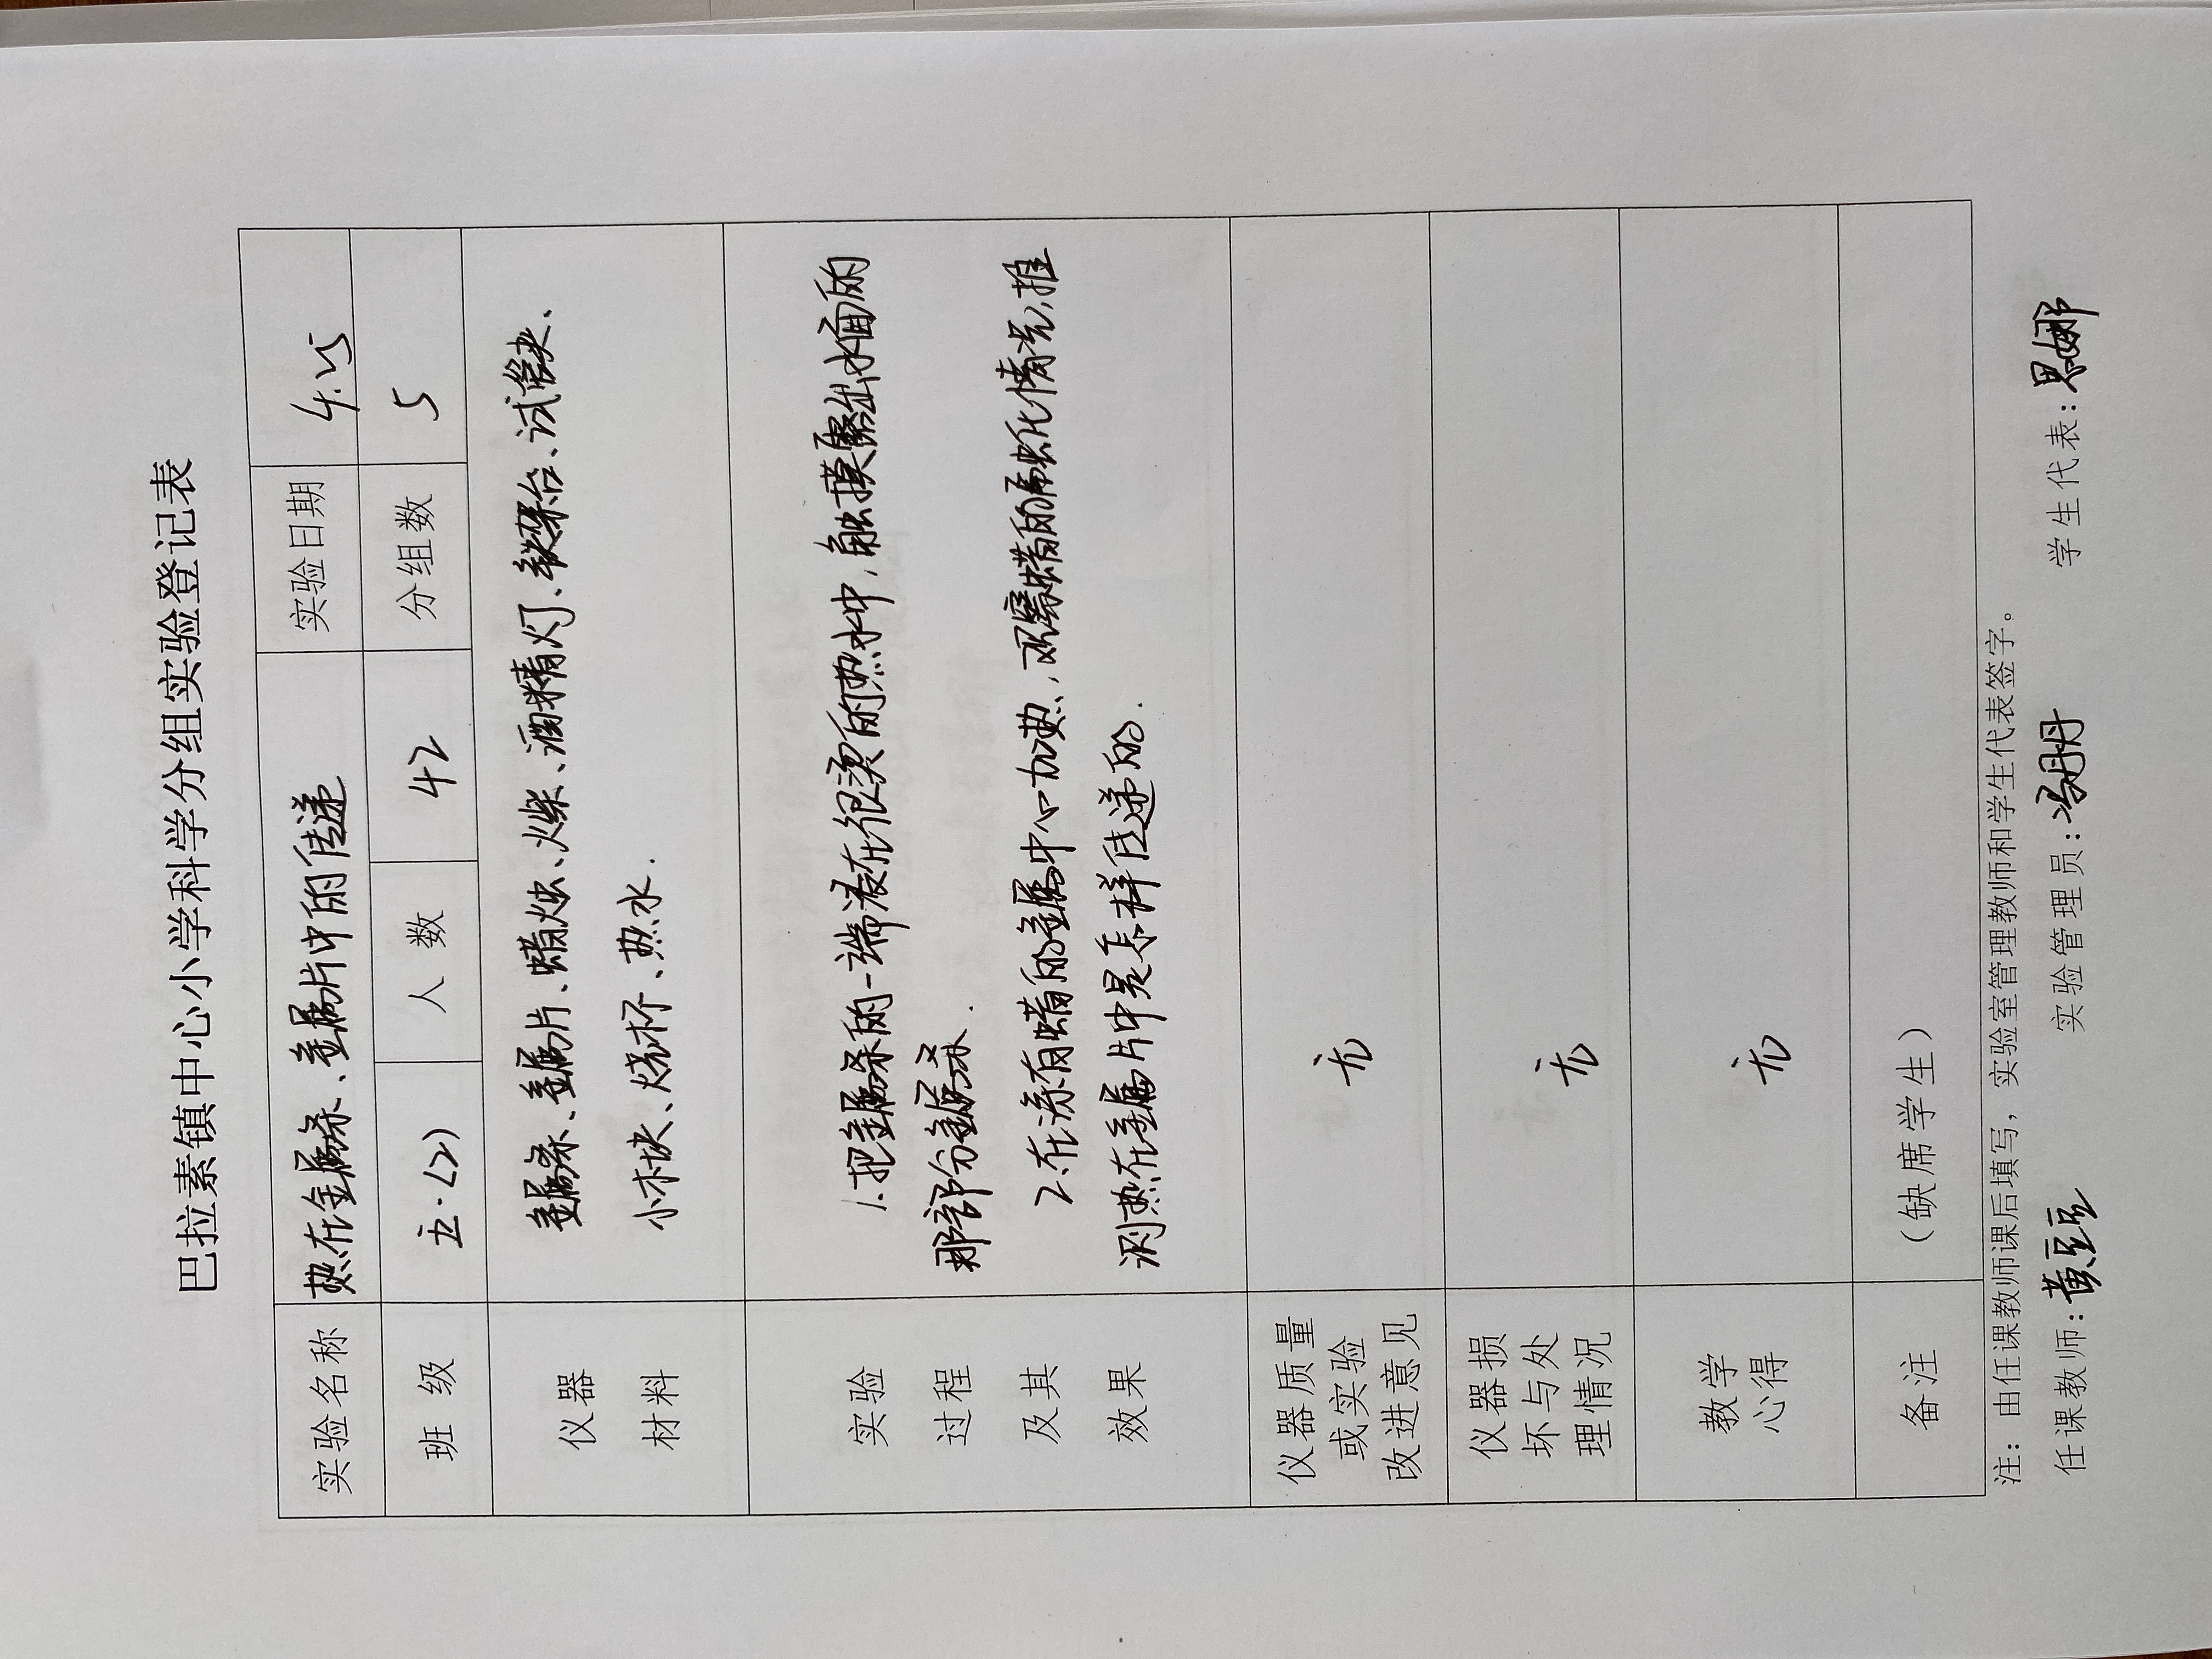 巴拉素镇中心小学科学分组实验登记表
实验名称 热在金属条、金属片中的传递 实验日期 4.25
班级 五·(2) 人数 42 分组数 5
仪器 金属条、金属片、蜡烛、火柴、酒精灯、铁架台、试管夹、
材料 小木块、烧杯、热水.
实验 1.把金属条的一端浸在很烫的热水中,触摸露出水面的
过程 那部分金属条.
及其 2.在涂有蜡的金属中心加热,观察蜡的融化情况,推
效果 测热在金属片中是怎样传递的.
仪器质量
或实验 无
改进意见
仪器损
坏与处 无
理情况
教学
心得 无
备注 (缺席学生)
注:由任课教师课后填写,实验室管理教师和学生代表签字。
任课教师:黄豆豆 实验管理员:冯丹 学生代表:思娜